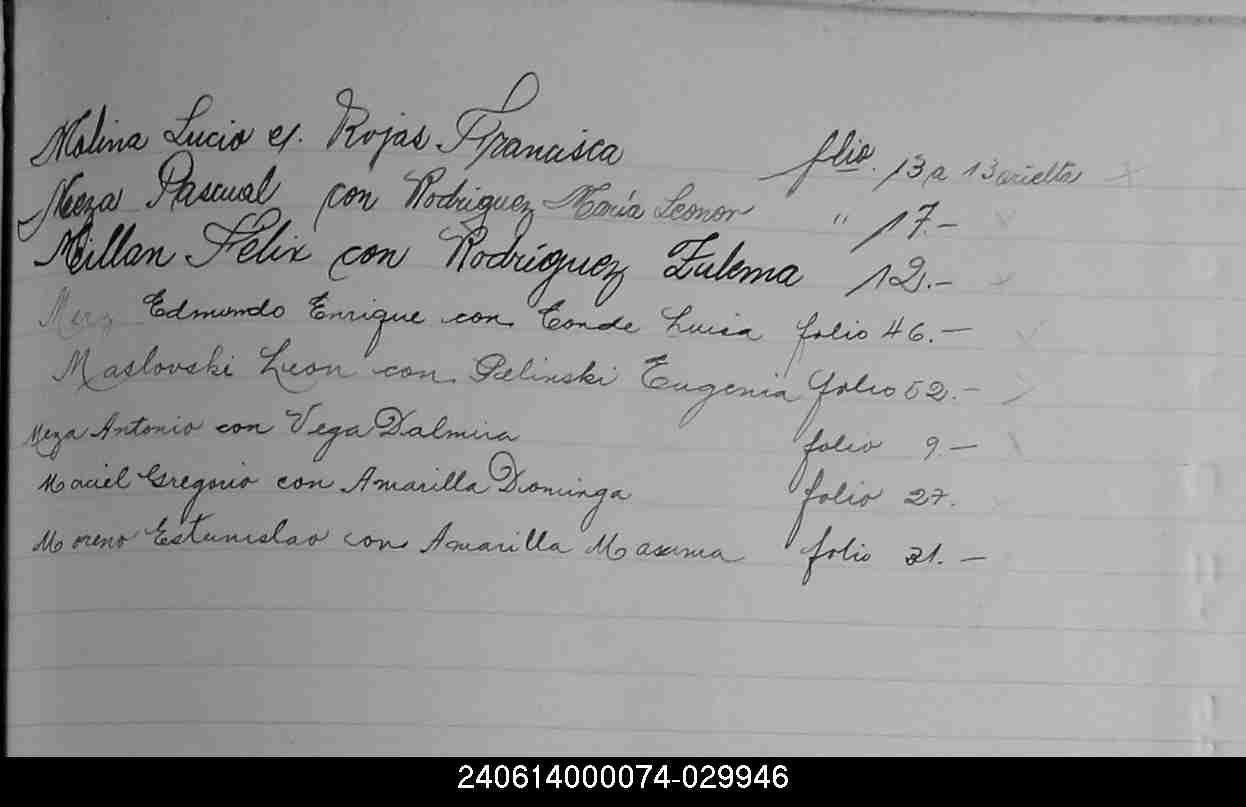 Molina Lucio c/. Rojas Francisca folio. 13 a 13 vielta
Meza Pascual con Rodriguez María Leonor " 17.-
Millan Félix con Rodríguez Zulema 12.-
Edmundo Enrique con Conde Luisa folio 46.-
Maslovski Leon con Pelinski Eugenia folio 52.-
Meza Antonio con Vega Dalmira folio 9.-
Maciel Gregorio con Amarilla Dominga folio 27.
Moreno Estanislao con Amarilla Masima folio 31.-
240614000074-029946